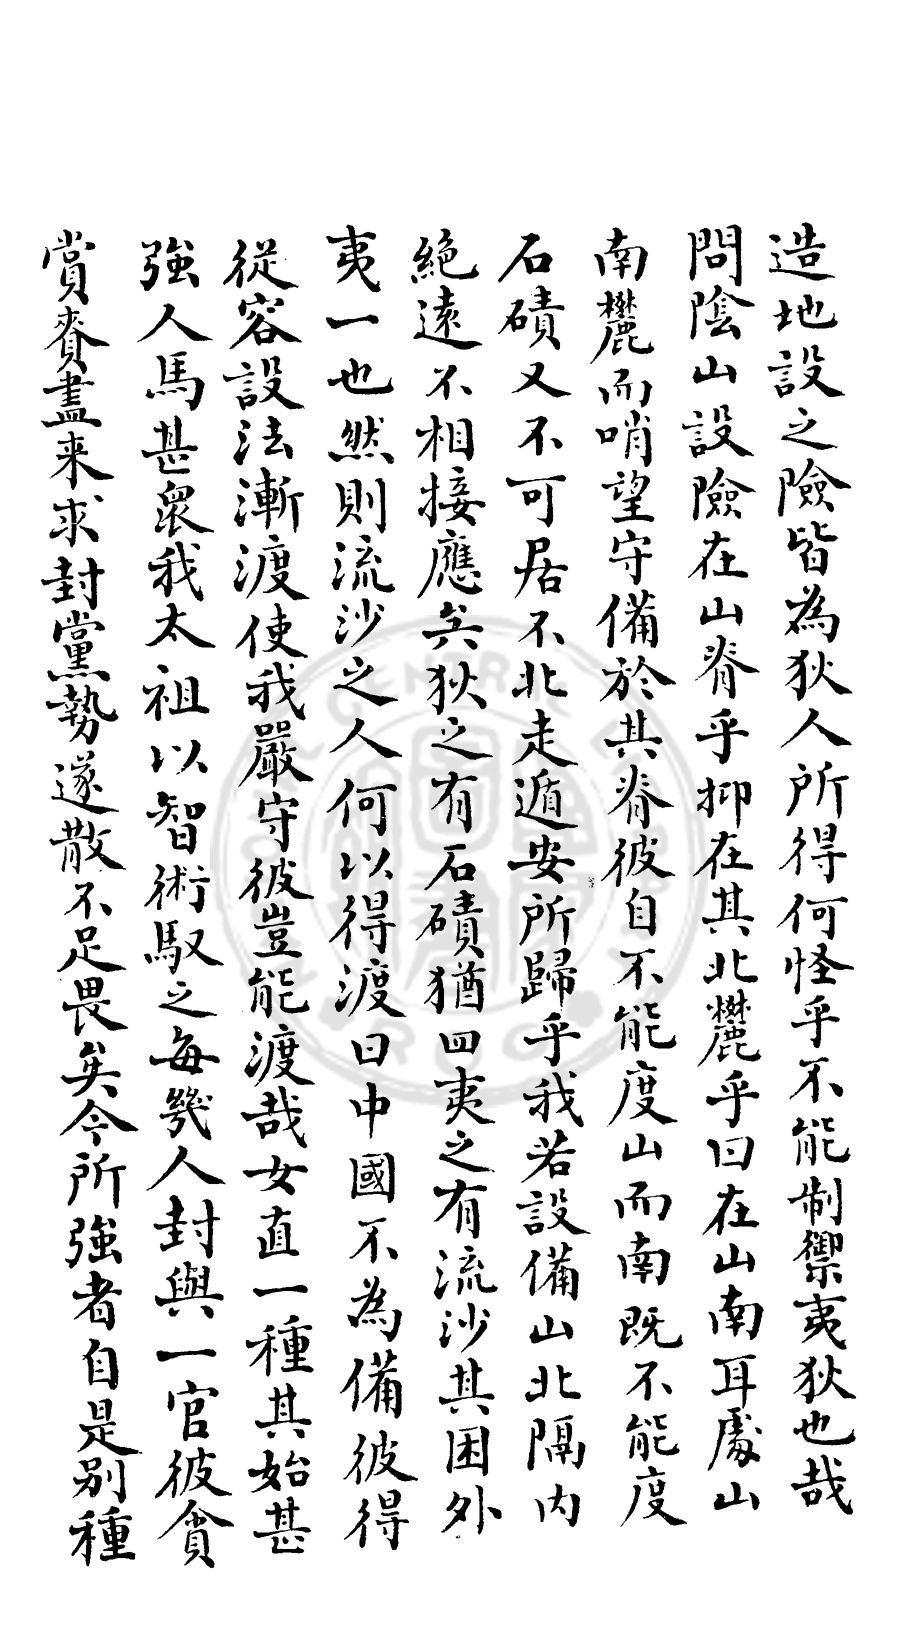 造地設之險皆為狄人所得何怪乎不能制禦夷狄也哉
問陰山設險在山脊乎抑在其北麓乎曰在山南耳處山
南麓而哨望守備於其脊彼自不能度山而南既不能度
石磧又不可居不北走遁安所歸乎我若設備山北隔內
絶遠不相接應矣狄之有石磧猶四夷之有流沙其困外
夷一也然則流沙之人何以得渡曰中國不為備彼得
從容設法漸渡使我嚴守彼豈能渡哉女直一種其始甚
強人馬甚衆我太祖以智術馭之每幾人封與一官彼貪
賞賚盡来求封黨勢遂散不足畏矣今所強者自是别種